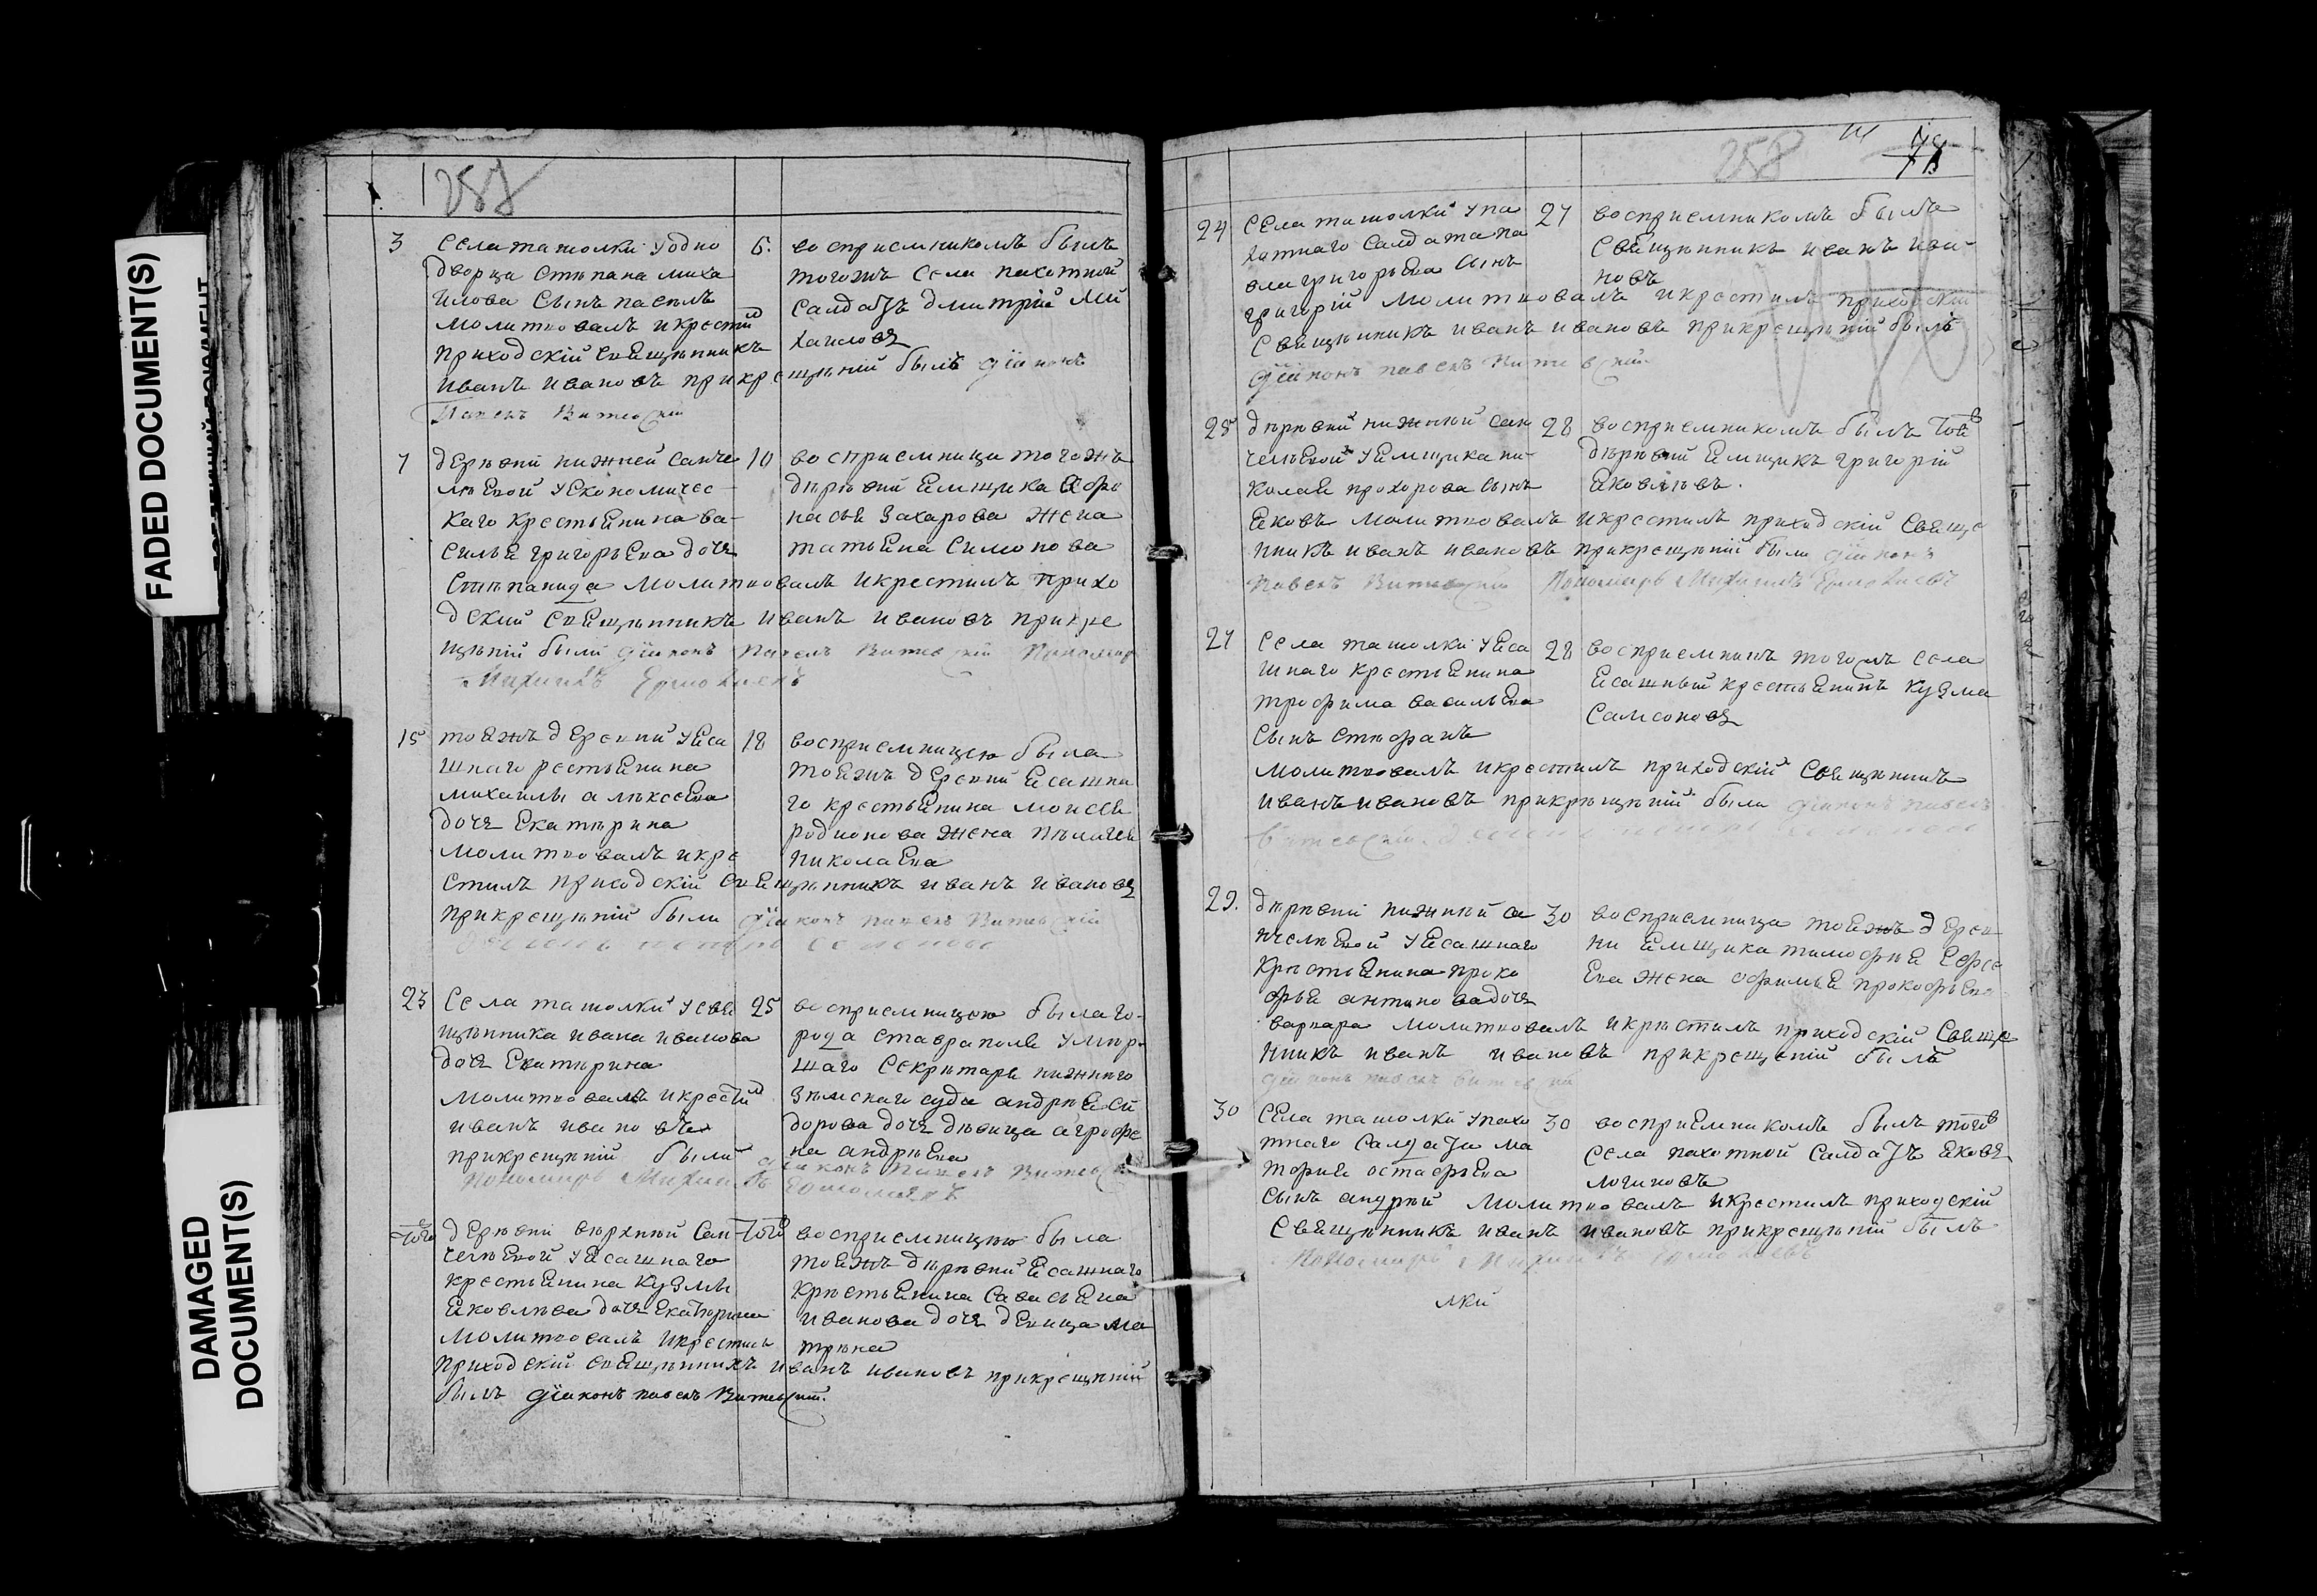 FADED DOCUMENT(S)
DAMAGED
DOCUMENT(S)
258
3 Села ташолки у одно
дворца стѣпана миха
илова сынъ павелъ
молитвовалъ икрестил
приходскій свещѣнникъ
иванъ ивановъ прикрещѣній былъ діиконъ
Павелъ Витевскій
6. восприемникомъ былъ
тогожъ села пахотной
салдатъ дмитрій ми
хаиловъ
7 дерѣвни нижней санче
лѣевой уекономичес
каго крестьенина ва-
силья григорьева дочь
стѣпанида молитвовалъ икрестилъ прихо
дский свещѣнникъ иванъ ивановъ прикре
щѣніи были діиконъ Павелъ Витевскій Пономарь
Михаилъ Ермолаевъ
10 восприемница тогожъ
дѣрѣвни емщика афо
насья захарова жена
татьена симонова
15 тоежъ деревни уеса
шнаго рестьенина
михаилы алѣксеева
дочь екатѣрина
молитвовалъ икре
стилъ приходскій свещѣнникъ иванъ ивановъ
прикрещѣніи были діиконъ павелъ Витевскій
18 восприемницею была
тоежъ деревни есашна
го крестьенина моисея
родионова жена пѣлагея
николаева
23 Села ташолки усве
щѣнника ивана иванова
дочь Екатирина
молитвовалъ икрестил
иванъ ивановъ
прикрещѣніи были діиконъ Павелъ Витевскій
Пономарь Михаилъ Ермолаевъ
25 восприемницею была го-
рода ставраполя умир
шаго секрѣтаря нижнего
зѣмскаго суда андрѣя си
дорова дочь дѣвица агрофе
на андрѣева
того дерѣвни вѣрхней сан
челѣевой уесашнаго
крестьенина кузмы
яковлѣва дочь екатѣрина
молитвовалъ икрестилъ
приходскій свещѣнникъ иванъ ивановъ прикрещѣніи
былъ діиконъ павелъ Витевскій.
того восприемницею была
тоежъ дѣрѣвни есашнаго
крѣстьенина савасьена
иванова дочь девица ма
трѣна
258
24 Села ташолки упа
хатнаго салдата па
вла григорьева сынъ
григорій молитвовалъ икрестилъ приходскій
свещѣнникъ иванъ ивановъ прикрещѣніи былъ
діиконъ павелъ Витевскій
27 восприемникомъ былъ
свещѣнникъ иванъ ива-
новъ
25 дѣрѣвни нижней сан
челѣевой уемщика ни-
колая прохорова сынъ
яковъ молитвовалъ икрестилъ приходскій свеще
нникъ иванъ ивановъ прикрещѣніи были діиконъ
Павелъ Витевскій Пономарь Михаилъ Ермолаевъ
28 восприемникомъ былъ тоев
дѣрѣвни емщикъ григорій
яковлѣвъ.
27 Села ташолки уеса
шнаго крестьенина
трофима васильева
сынъ стѣфанъ
молитвовалъ икрестилъ приходскій свещѣнникъ
иванъ ивановъ прикрѣщѣніи были діиконъ павелъ
Витевскій
28 восприемникъ тогожъ села
есашный крестьенинъ кузма
самсоновъ
29. дѣрѣвни нижней са
нчелѣевой уесашнаго
крѣстьенина проко
фья антипова дочь
варвара молитвовалъ икрѣстилъ приходскій свеще
нникъ иванъ ивановъ прикрещеніи былъ
діиконъ павелъ Витевскій
30 восприемница тоежъ дерев
ни емщика тимофѣя ефре
ева жена офимья прокофьева
30 Села ташолки упахо
тнаго салдата ма
тофия остафьева
сынъ андрѣй молитвовалъ икрестилъ приходскій
свещѣнникъ иванъ ивановъ прикрещѣніи былъ
Пономарь Михаилъ Ермолаевъ
30 восприемникомъ былъ того
села пахотной салдатъ яковъ
логиновъ
лки